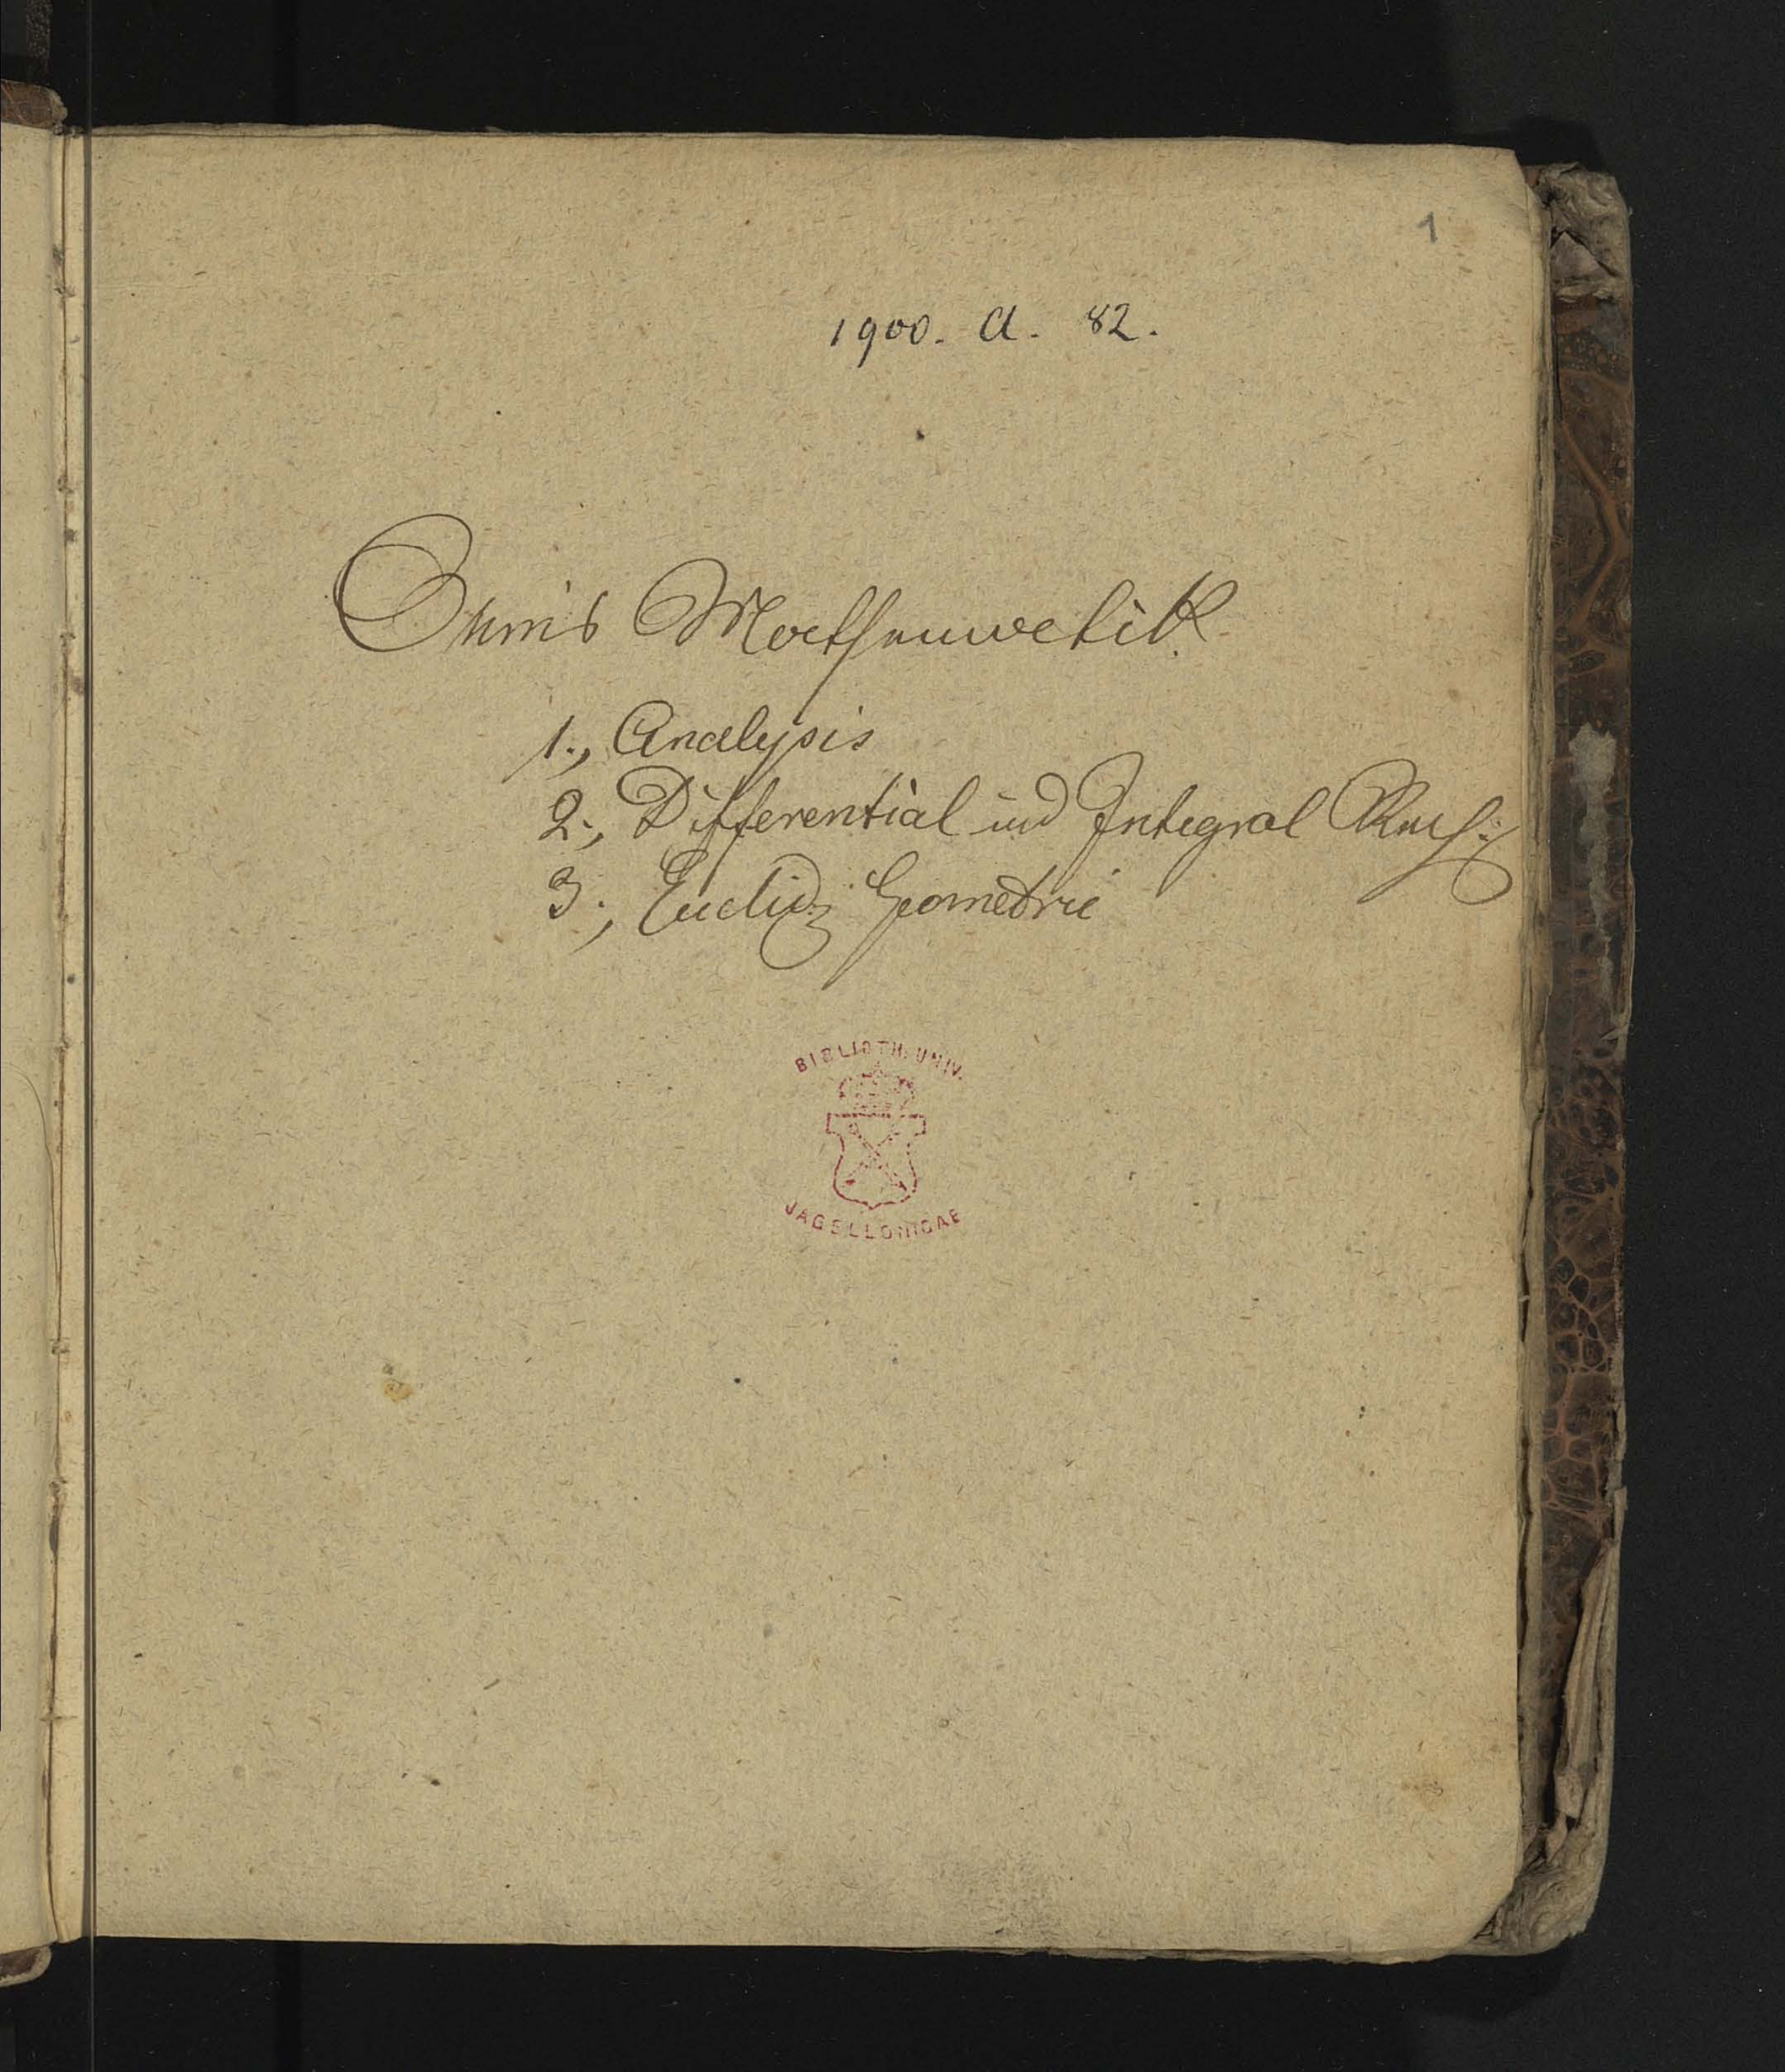 1
1900. A. 82.
Ohm's Mathematik.
1., Analysis
2., Differential und Integral Rech:
3., Euclid: Geometrie
BIBLIOTH. UNIV.
JAGELLONICAE